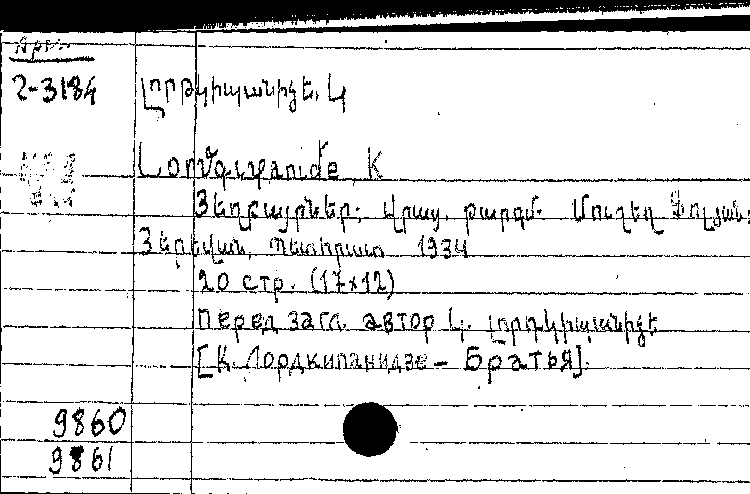 Арм.
2-3184 Լորթկիպանիձե, Կ
Lordqipanidze, K
Յեղբայրներ: Վրաց. թարգմ. Մուշեղ
Յերեվան, Պետհրատ 1934
20 стр. (17×12)
перед загл. автор Կ. Լորդկիպանիձե
[К. Лордкипанидзе – Братья].
9860
9861